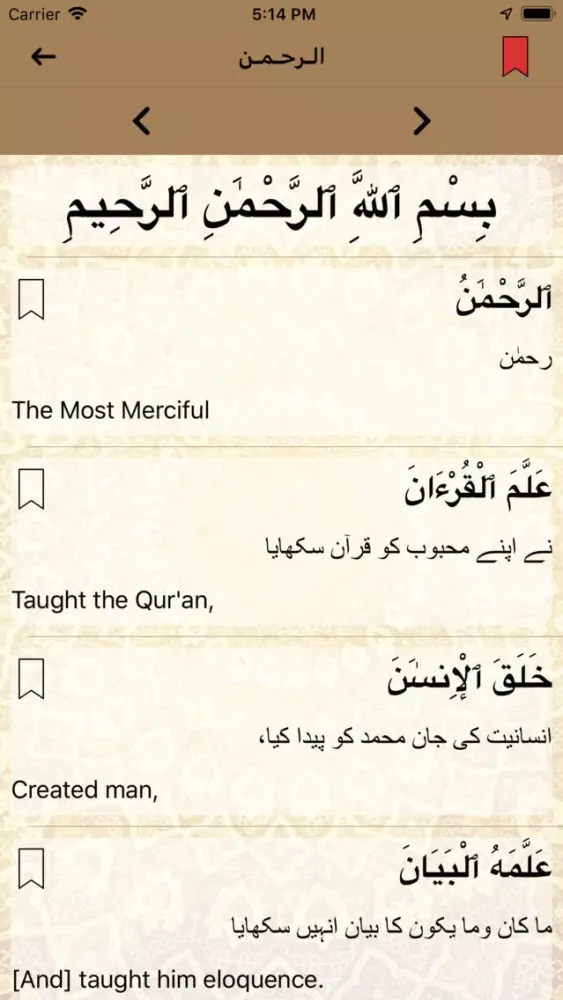 Carrier 5:14 PM
الرحمن
بِسْمِ ٱللَّهِ ٱلرَّحْمَٰنِ ٱلرَّحِيمِ
ٱلرَّحْمَٰنُ
رحمٰن
The Most Merciful
عَلَّمَ ٱلْقُرْءَانَ
نے اپنے محبوب کو قرآن سکھایا
Taught the Qur'an,
خَلَقَ ٱلْإِنسَٰنَ
انسانیت کی جان محمد کو پیدا کیا،
Created man,
عَلَّمَهُ ٱلْبَيَانَ
ما کان وما یکون کا بیان انہیں سکھایا
[And] taught him eloquence.